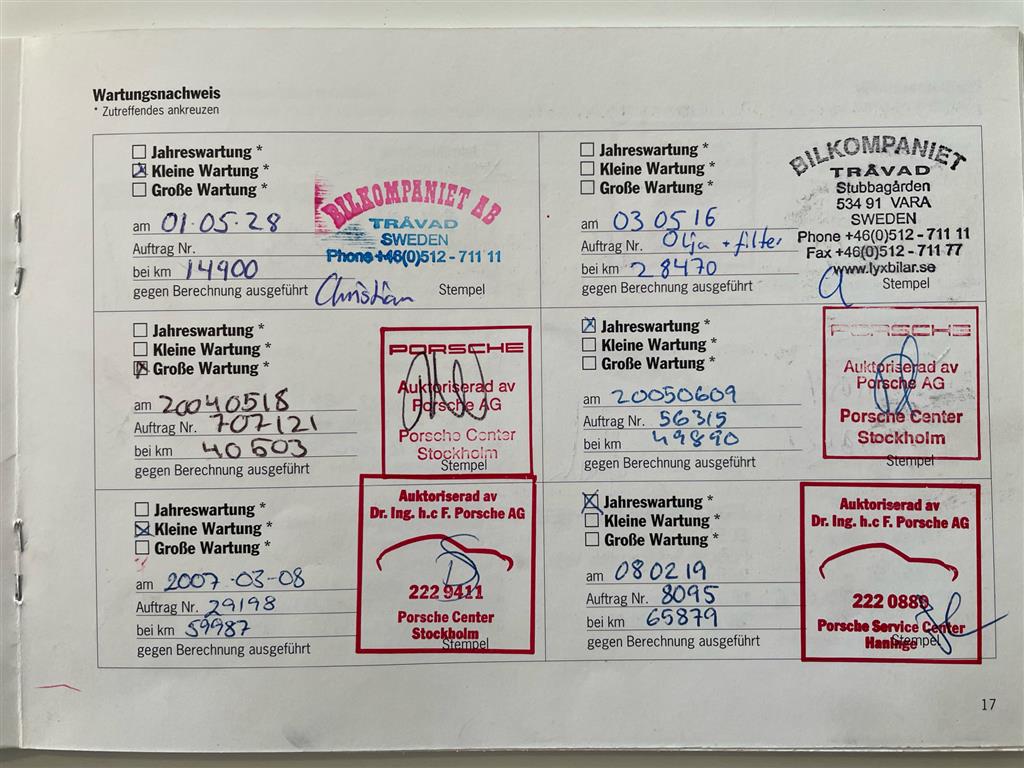 Wartungsnachweis
* Zutreffendes ankreuzen
Jahreswartung *
Kleine Wartung *
Große Wartung *
am 01.05.28
Auftrag Nr.
bei km 14900
gegen Berechnung ausgeführt
BILKOMPANIET AB
TRÅVAD
SWEDEN
Phone +46(0)512 - 711 11
Christian
Stempel
Jahreswartung *
Kleine Wartung *
Große Wartung *
am 03 05 16
Auftrag Nr. Olja + filter
bei km 28470
gegen Berechnung ausgeführt
BILKOMPANIET
TRÅVAD
Stubbagården
534 91 VARA
SWEDEN
Phone +46(0)512 - 711 11
Fax +46(0)512 - 711 77
www.lyxbilar.se
Stempel
Jahreswartung *
Kleine Wartung *
Große Wartung *
am 20040518
Auftrag Nr. 707121
bei km 40503
gegen Berechnung ausgeführt
PORSCHE
Auktoriserad av
Porsche AG
Porsche Center
Stockholm
Stempel
Jahreswartung *
Kleine Wartung *
Große Wartung *
am 20050609
Auftrag Nr. 56315
bei km 49890
gegen Berechnung ausgeführt
PORSCHE
Auktoriserad av
Porsche AG
Porsche Center
Stockholm
Stempel
Jahreswartung *
Kleine Wartung *
Große Wartung *
am 2007-03-08
Auftrag Nr. 29198
bei km 59987
gegen Berechnung ausgeführt
Auktoriserad av
Dr. Ing. h.c F. Porsche AG
222 9411
Porsche Center
Stockholm
Stempel
Jahreswartung *
Kleine Wartung *
Große Wartung *
am 080219
Auftrag Nr. 8095
bei km 65879
gegen Berechnung ausgeführt
Auktoriserad av
Dr. Ing. h.c F. Porsche AG
222 0880
Porsche Service Center
Haninge
Stempel
17